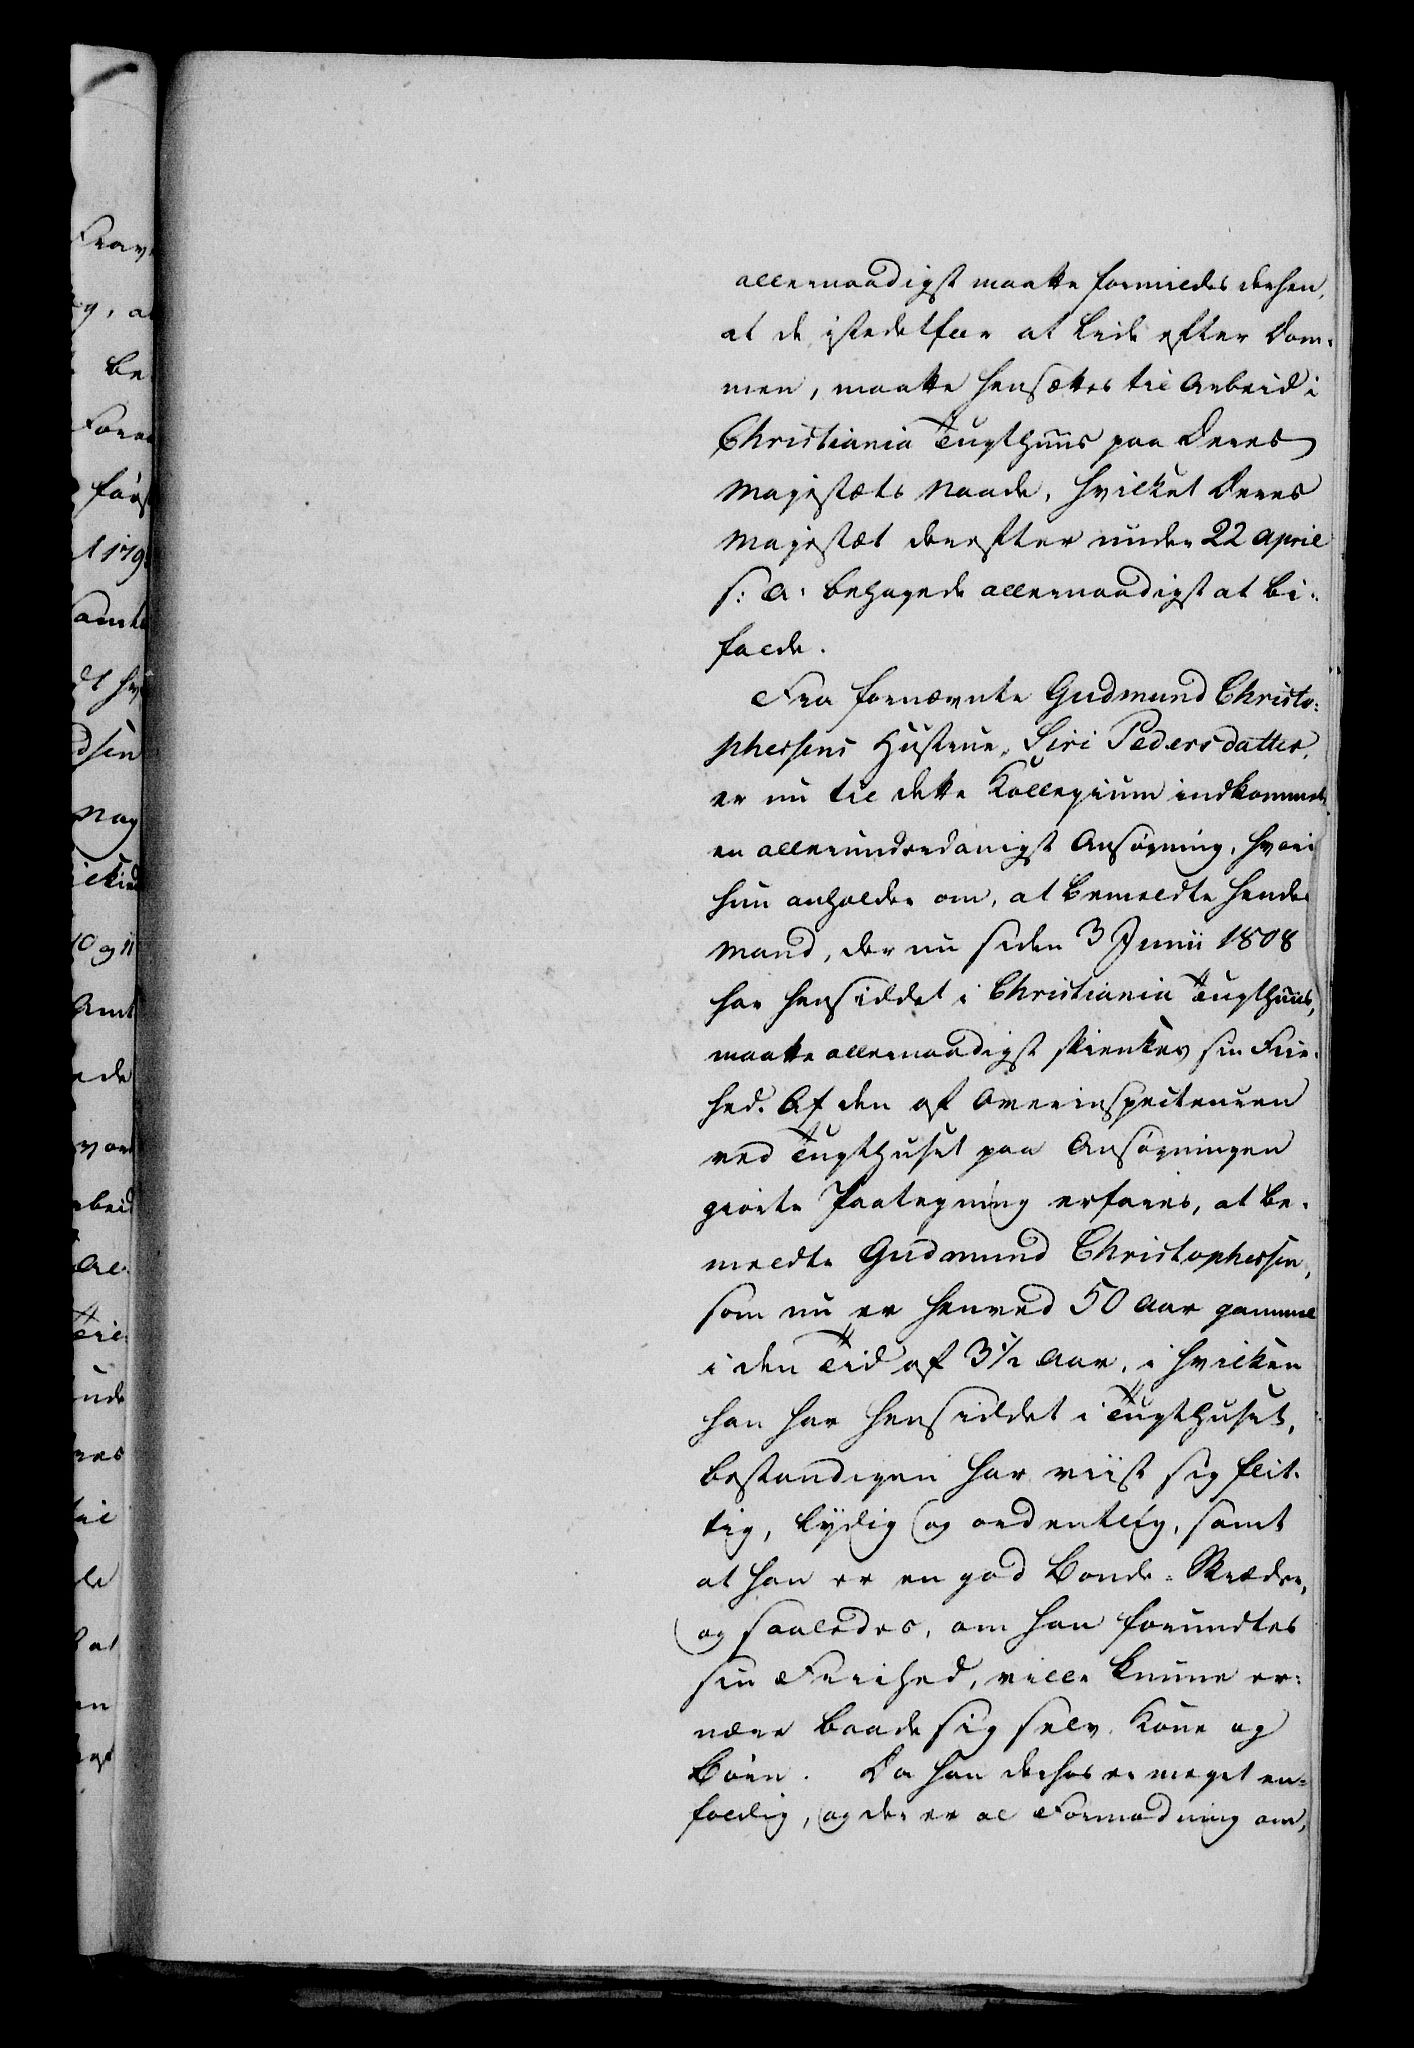 allernaadigst maatte formildes derhen,
at de istedetfor at lide efter Dom-
men, maatte hensættes til Arbeid i
Christiania Tugthuus paa Deres
Majestæts Naade, hvilket Deres
Majestæt derefter under 22 April
s: A: behagede allernaadigst at bi-
falde.
Fra fornævnte Gudmund Christo-
phersens Hustrue, Siri Pedersdatter,
er nu til dette Kollegium indkommet
en allerunderdanigst Ansøgning, hvori
hun anholder om, at bemeldte hendes
Mand, der nu siden 3 Junii 1808
har hensiddet i Christiania Tugthuus,
maatte allernaadigst skienkes sin Frie-
hed. Af den af Overinspecteuren
ved Tugthuset paa Ansøgningen
giorte Paategning erfares, at be-
meldte Gudmund Christophersen,
som nu er henved 50 Aar gammel
i den Tid af 3½ Aar, i hvilken
han har hensiddet i Tugthuset,
bestandigen har viist sig flit-
tig, lydig og ordentlig, samt
at han er en god Bonde-Skræder,
og saaledes, om han forundtes
sin Friehed, ville kunne er-
nære baade sig selv, Kone og
Børn. Da han derhos er meget en-
foldig, og der er al Formodning om,
Fra
g, a
be
For
først
1179
samt
dt hv
dsen
Nog
10 og 11
Amt
ede
var
rbeid
Al
Til
nde
res
til
le
at
en